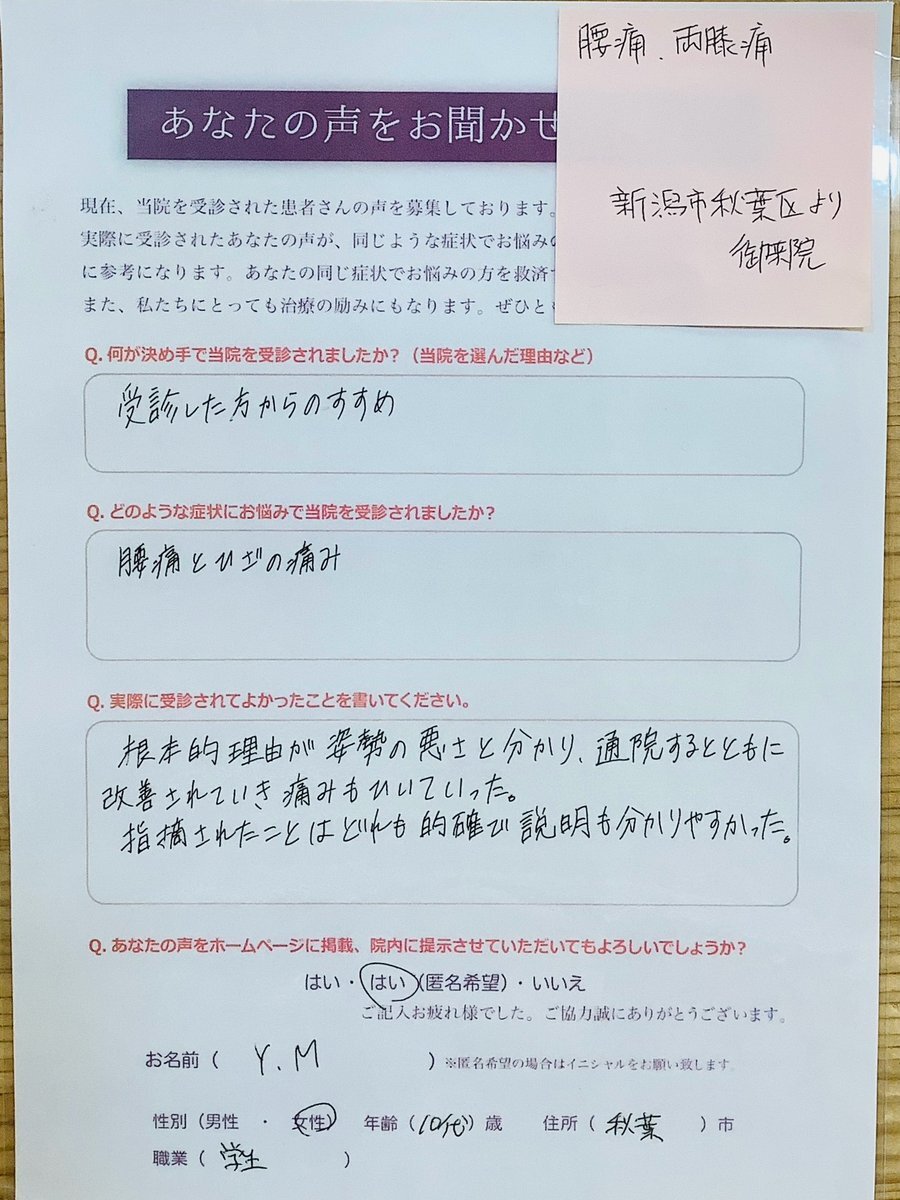 腰痛、両膝痛
新潟市秋葉区より
御来院
あなたの声をお聞かせ
現在、当院を受診された患者さんの声を募集しております。
実際に受診されたあなたの声が、同じような症状でお悩みの
に参考になります。あなたの同じ症状でお悩みの方を救済
また、私たちにとっても治療の励みにもなります。ぜひと
Q. 何が決め手で当院を受診されましたか？（当院を選んだ理由など）
受診した方からのすすめ
Q. どのような症状にお悩みで当院を受診されましたか？
腰痛とひざの痛み
Q. 実際に受診されてよかったことを書いてください。
根本的理由が姿勢の悪さと分かり、通院するとともに
改善されていき痛みもひいていった。
指摘されたことはどれも的確で説明も分かりやすかった。
Q. あなたの声をホームページに掲載、院内に提示させていただいてもよろしいでしょうか？
はい・はい（匿名希望）・いいえ
ご記入お疲れ様でした。ご協力誠にありがとうございます。
お名前（ Y.M ）※匿名希望の場合はイニシャルをお願い致します。
性別（男性 ・ 女性） 年齢（10代）歳 住所（ 秋葉 ）市
職業（ 学生 ）